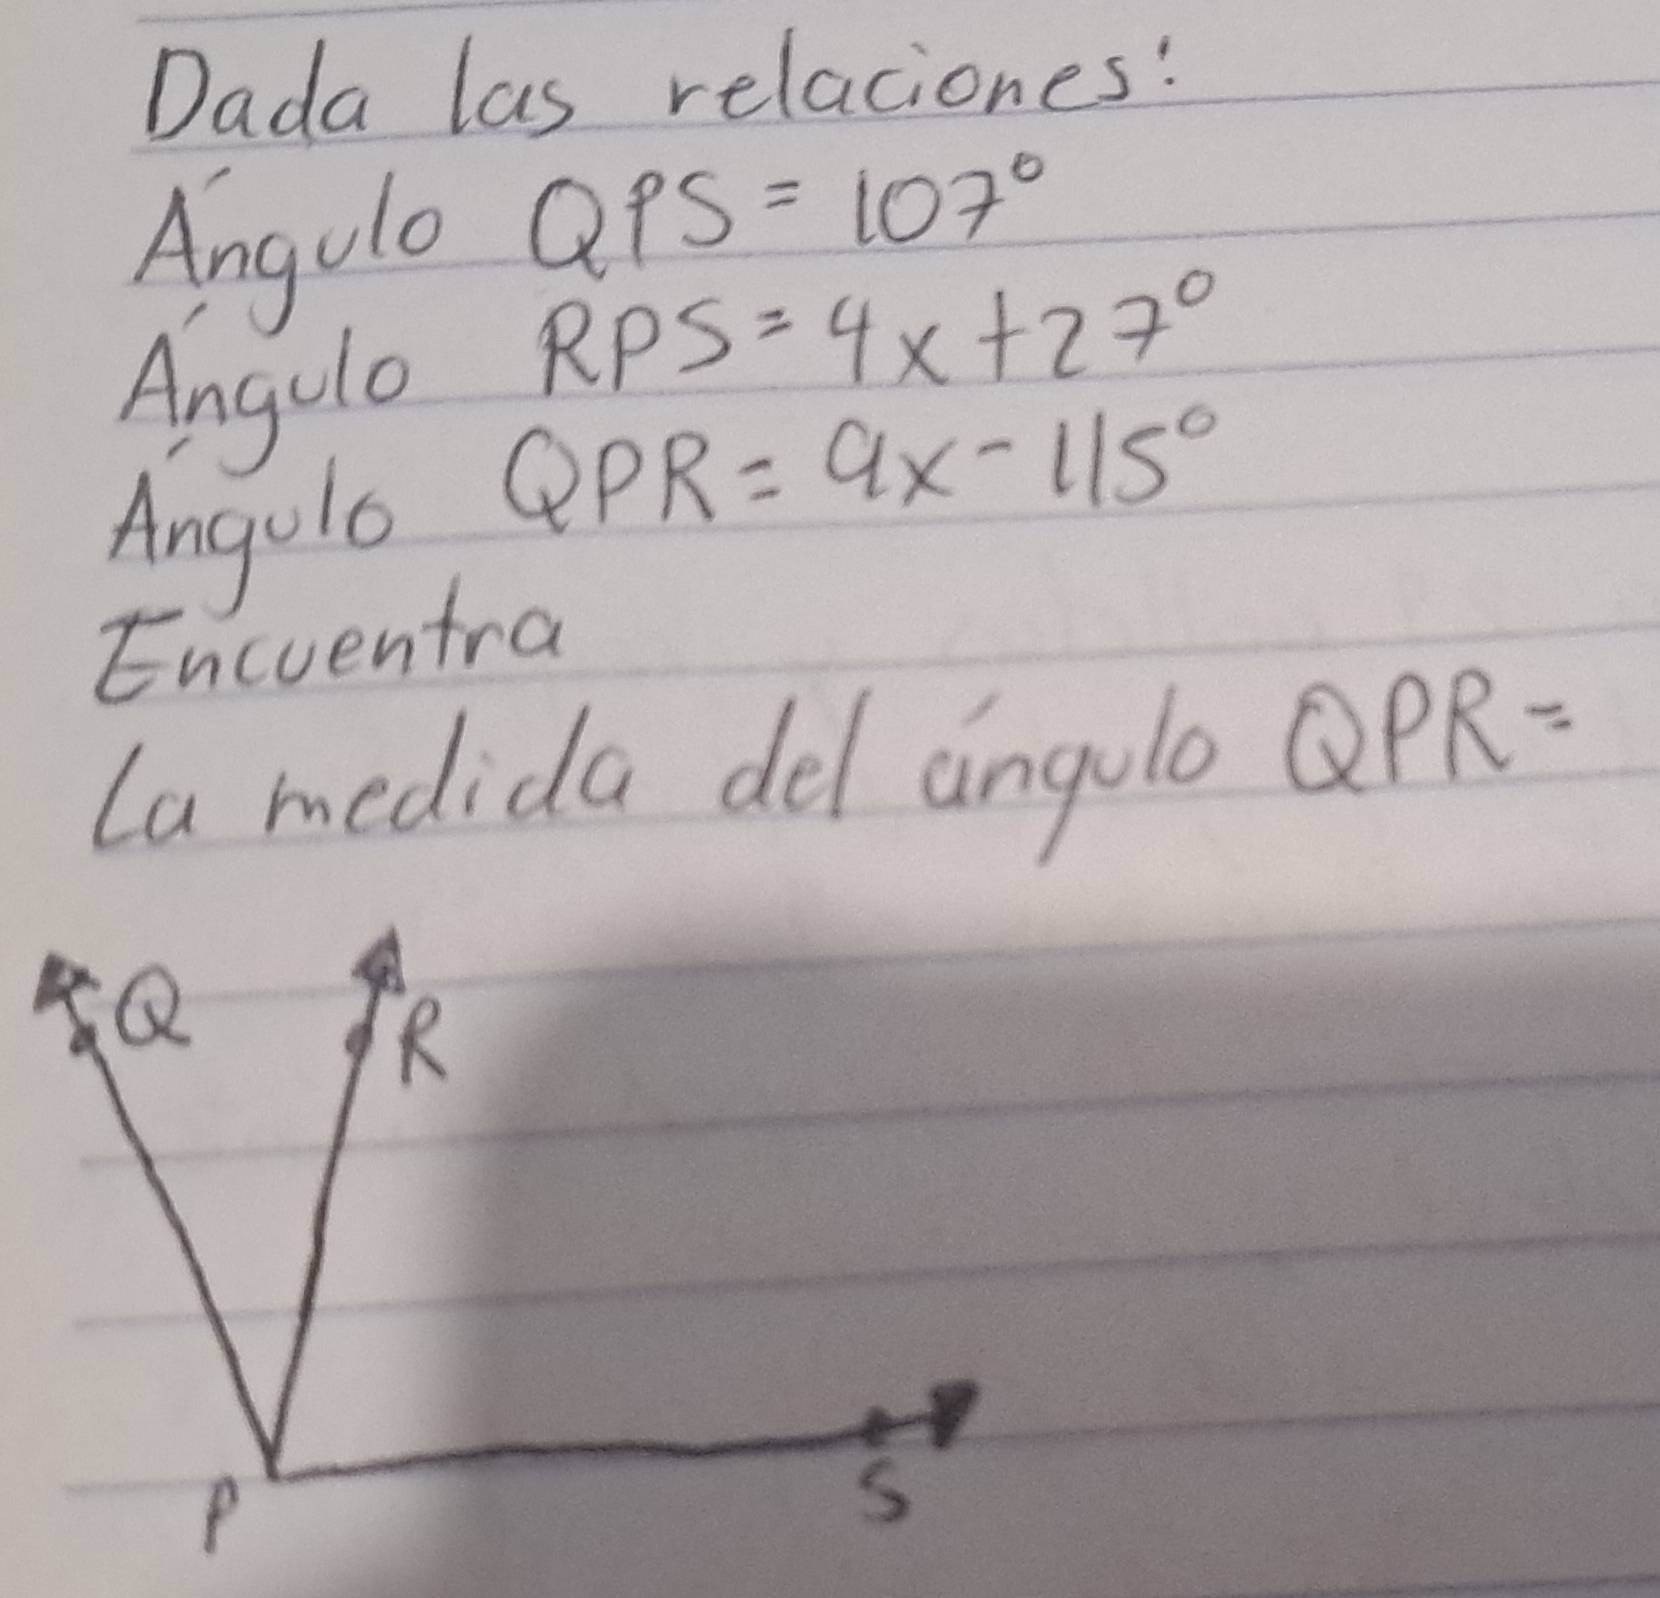 Dada las relaciones:
Ángulo QPS = 107°
Ángulo RPS = 4x + 27°
Ángulo QPR = 9x - 115°
Encuentra
La medida del ángulo QPR =
Q
R
P
S